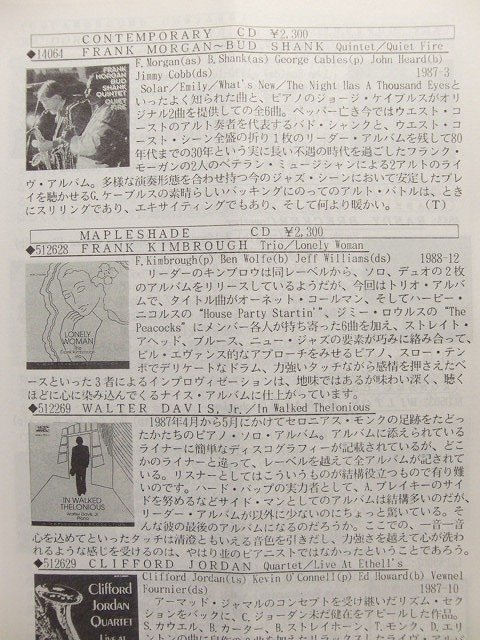 CONTEMPORARY CD ¥2,300
◆14064 FRANK MORGAN～BUD SHANK Quintet／Quiet Fire
FRANK
MORGAN
BUD
SHANK
QUINTET
QUIET
FIRE
F.Morgan(as) B.Shank(as) George Cables(p) John Heard(b)
Jimmy Cobb(ds) 1987-3
Solar／Emily／What's New／The Night Has A Thousand Eyesと
いったよく知られた曲と、ピアノのジョージ・ケイブルスがオリ
ジナル2曲を提供しての全6曲。ペッパー亡き今ではウエスト・コ
ーストのアルト奏者を代表するバド・シャンクと、ウエスト・コ
ースト・シーン全盛の折り1枚のリーダー・アルバムを残して80
年代までの30年という実に長い不遇の時代を過ごしたフランク・
モーガンの2人のベテラン・ミュージシャンによる2アルトのライ
ヴ・アルバム。多様な演奏形態を合わせ持つ今のジャズ・シーンにおいて安定したプレ
イを聴かせるG.ケーブルスの素晴らしいバッキングにのってのアルト・バトルは、とき
にスリリングであり、エキサイティングでもあり、そして何より暖かい。 (T)
MAPLESHADE CD ¥2,300
◆512628 FRANK KIMBROUGH Trio／Lonely Woman
LONELY
WOMAN
F.Kimbrough(p) Ben Wolfe(b) Jeff Williams(ds) 1988-12
リーダーのキンブロウは同レーベルから、ソロ、デュオの2枚
のアルバムをリリースしているようだが、今回はトリオ・アルバ
ムで、タイトル曲がオーネット・コールマン、そしてハービー・
ニコルスの "House Party Startin'"、ジミー・ロウルスの "The
Peacocks" にメンバー各人が持ち寄った6曲を加え、ストレイト・
アヘッド、ブルース、ニュー・ジャズの要素が巧みに絡み合って、
ビル・エヴァンス的なアプローチをみせるピアノ、スロー・テン
ポでデリケートなドラム、力強いタッチながら感情を押さえたベ
ースといった3者によるインプロヴィゼーションは、地味ではあるが味わい深く、聴く
ほどに心に染み込んでくるナイス・アルバムに仕上がっています。
◆512269 WALTER DAVIS, Jr.／In Walked Thelonious
IN WALKED
THELONIOUS
Walter Davis Jr.
Piano
1987年4月から5月にかけてセロニアス・モンクの足跡をたどっ
たかたちのピアノ・ソロ・アルバム。アルバムに添えられている
ライナーに簡単なディスコグラフィーが記載されているが、どこ
かのライナーと違って、レーベルを越えて全アルバムが記されて
いる。リスナーとしてはこういうものが結構役立つもので有り難
いのです。ハード・バップの実力者として、A.ブレイキーのサイ
ドを努めるなどサイド・マンとしてのアルバムは結構多いのだが、
リーダー・アルバムが以外に少ないのにちょっと驚いている。そ
んな彼の最後のアルバムになるのだろうか。ここでの、一音一音
心を込めてといったタッチは清澄ともいえる音色を引きだし、力強さを越えて心が洗わ
れるような感じを受けるのは、やはり並のピアニストではなかったということであろう。
◆512629 CLIFFORD JORDAN Quartet／Live At Ethell's
Clifford
Jordan
Quartet
Live at
Clifford Jordan(ts) Kevin O'Connell(p) Ed Howard(b) Vewnel
Fournier(ds) 1987-10
アーマッド・ジャマルのコンセプトを受け継いだリズム・セク
ションをバックに、C.ジョーダン未だ健在をアピールした作品。
S.カウエル、B.カーター、B.ストレイホーン、T.モンク、